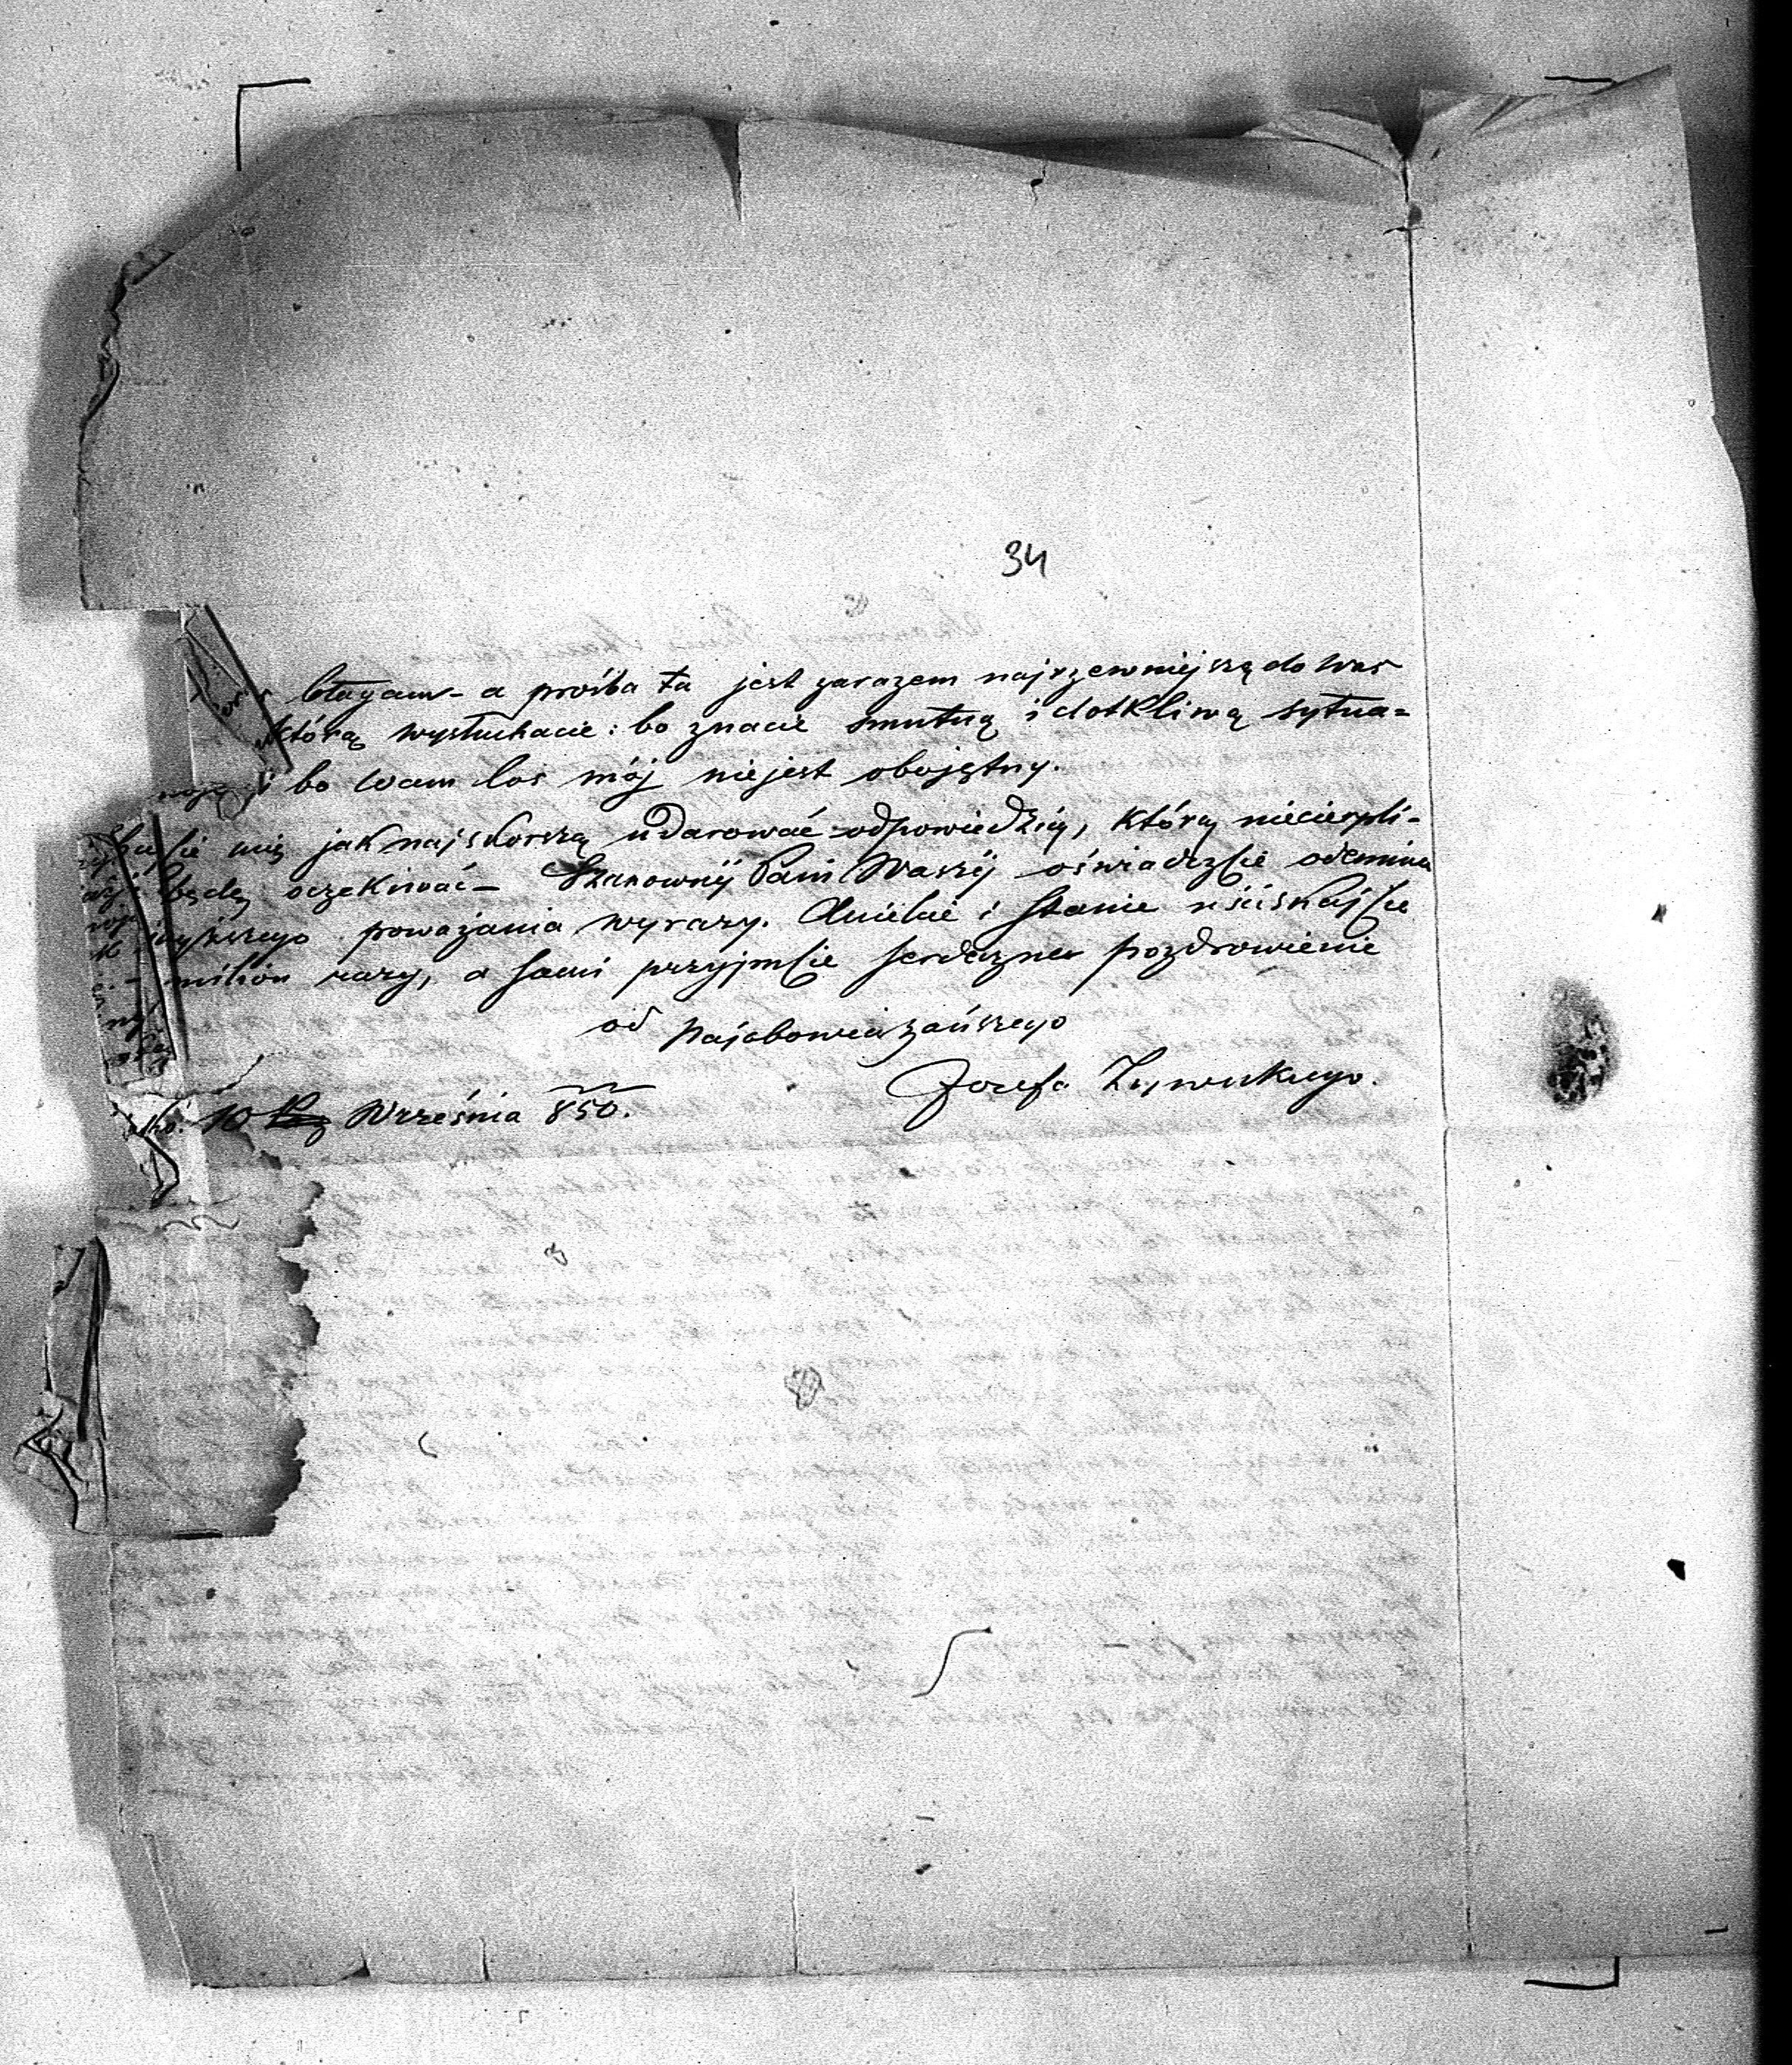 34
błagam – a prośba ta jest zarazem najrzewniejszą do Was
którą wysłuchacie: bo znacie smutną i dotkliwą sytua=
i bo Wam los mój niejest obojętny.
mię jaknajskorszą udarować odpowiedzią, którą niecierpli-
będę oczekiwać – Szanownéj Pani Waszéj oświadczcie odemnie
poważania wyrazy. Anielcie i Stasie uściskajcie
milion razy, a sami przyjmcie serdeczne pozdrowienie
od najobowiązańszego
Józefa
10 Września 850.